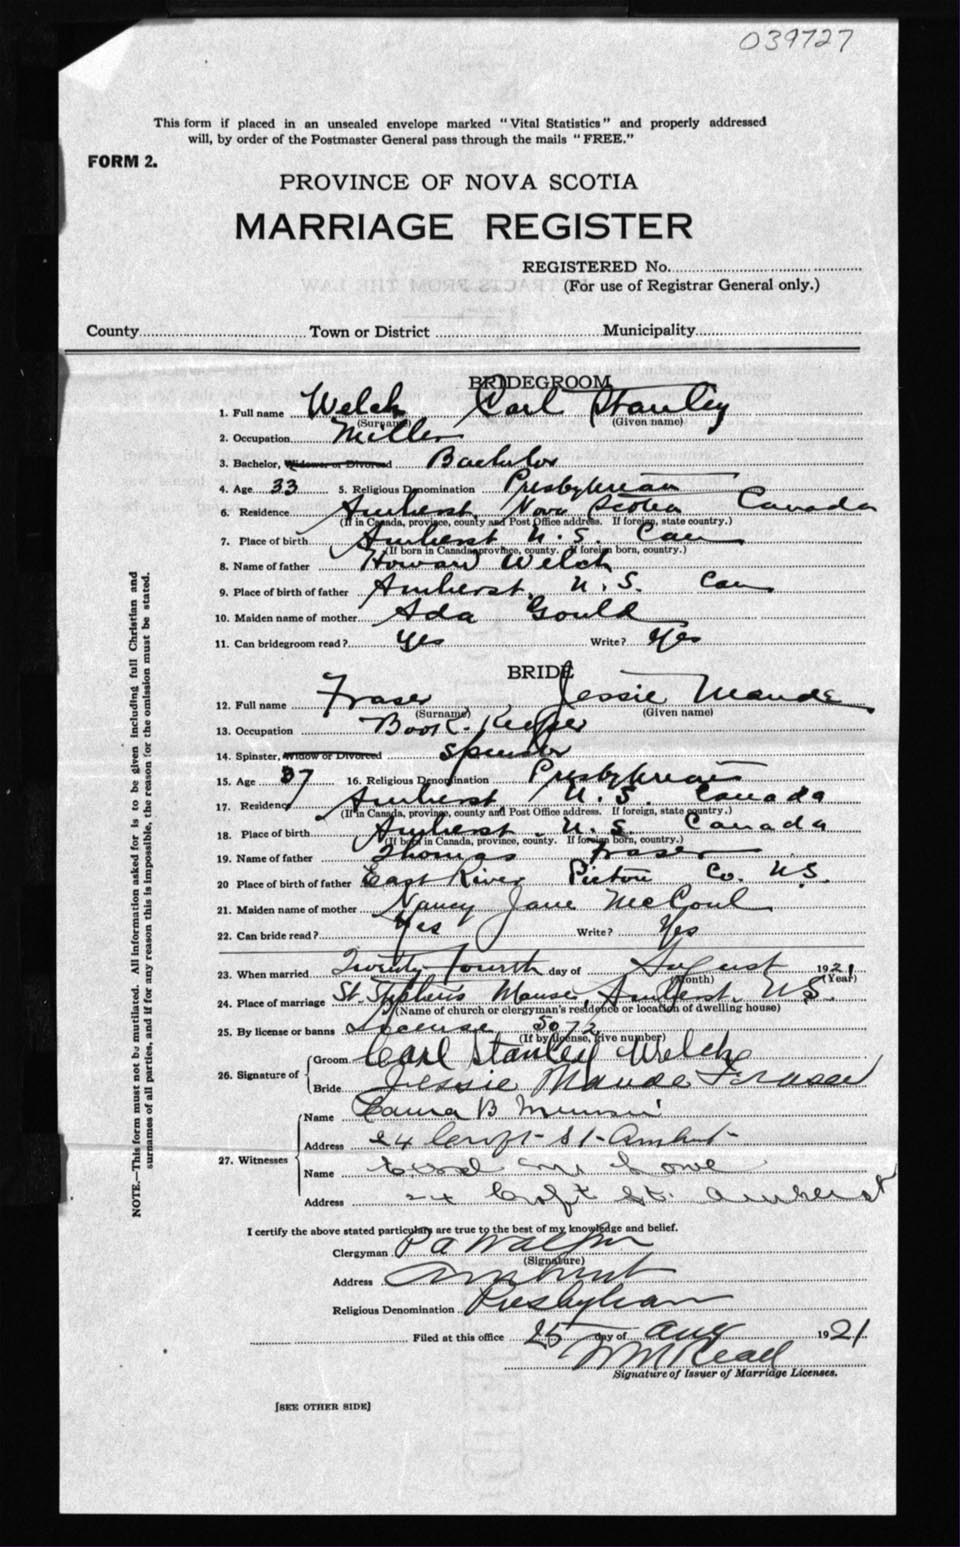 039727
This form if placed in an unsealed envelope marked "Vital Statistics" and properly addressed
will, by order of the Postmaster General pass through the mails "FREE."
FORM 2.
PROVINCE OF NOVA SCOTIA
MARRIAGE REGISTER
REGISTERED No.
(For use of Registrar General only.)
County Town or District Municipality
BRIDEGROOM
1. Full name Welch Carl Stanley
(Surname) (Given name)
2. Occupation Miller
3. Bachelor, Widower or Divorced Bachelor
4. Age 33 5. Religious Denomination Presbyterian
6. Residence Amherst, Nova Scotia Canada
(If in Canada, province, county and Post Office address. If foreign, state country.)
7. Place of birth Amherst N.S. Can
(If born in Canada, province, county. If foreign born, country.)
8. Name of father Howard Welch
9. Place of birth of father Amherst, N.S. Can
10. Maiden name of mother Ada Gould
11. Can bridegroom read? Yes Write? Yes
BRIDE
12. Full name Fraser Jessie Maude
(Surname) (Given name)
13. Occupation Book-Keeper
14. Spinster, Widow or Divorced Spinster
15. Age 37 16. Religious Denomination Presbyterian
17. Residence Amherst, N.S. Canada
(If in Canada, province, county and Post Office address. If foreign, state country.)
18. Place of birth Amherst, N.S. Canada
(If born in Canada, province, county. If foreign born, country.)
19. Name of father Thomas Fraser
20 Place of birth of father East River Pictou Co. N.S.
21. Maiden name of mother Nancy Jane McCoul
22. Can bride read? Yes Write? Yes
23. When married Twenty fourth day of August 1921
(Month) (Year)
24. Place of marriage St. Stephen's Manse, Amherst. N.S.
(Name of church or clergyman's residence or location of dwelling house)
25. By license or banns License 5072
(If by license, give number)
26. Signature of Groom Carl Stanley Welch
Bride Jessie Maude Fraser
27. Witnesses Name Laura B
Address 24 Croft St Amherst
Name M. Lowe
Address 24 Croft St. Amherst
I certify the above stated particulars are true to the best of my knowledge and belief.
Clergyman
(Signature)
Address Amherst
Religious Denomination Presbyterian
Filed at this office 25 day of Aug 1921
Signature of Issuer of Marriage Licenses.
[SEE OTHER SIDE]
NOTE.—This form must not be mutilated. All information asked for is to be given including full Christian and
surnames of all parties, and if for any reason this is impossible, the reason for the omission must be stated.